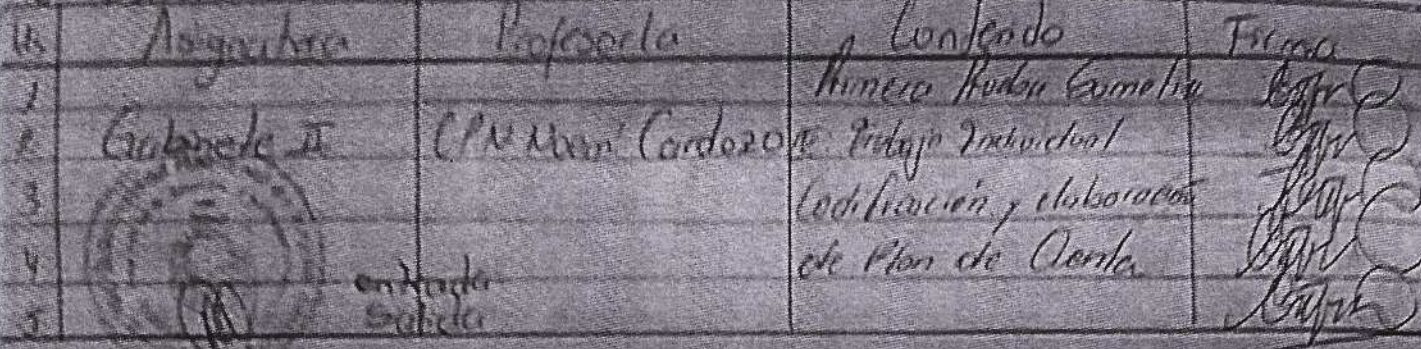 Hs Asignatura Profesor/a Contenido Firma
1 Primera Prueba Sumativa
2 Gabinete II CPN Cardozo Trabajo Individual
3 Codificación y elaboración
4 de Plan de Cuenta
entrada
5 Salida